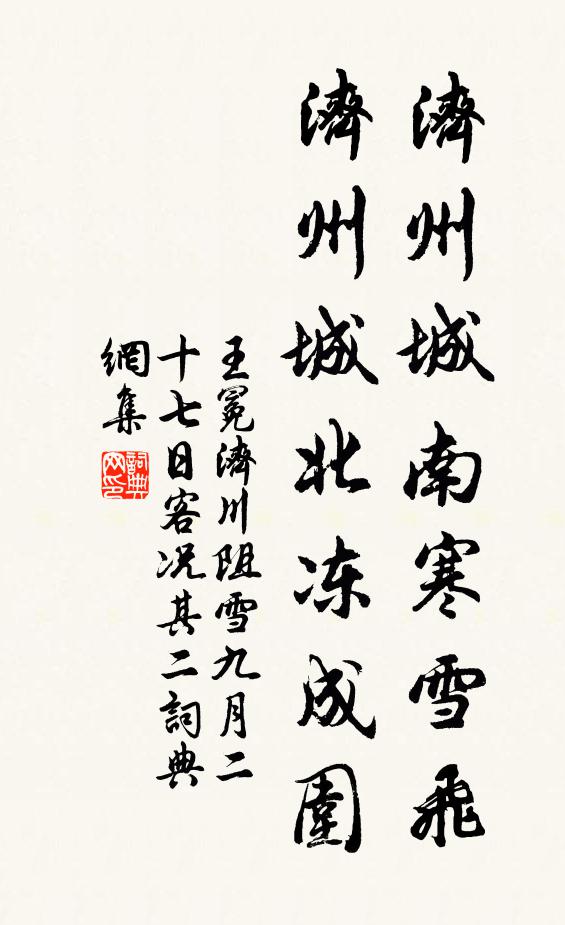 濟州城南寒雪飛
濟州城北冻成圍
王冕濟川阻雪九月二
十七日客况其二詞典
網集
詞典
网印